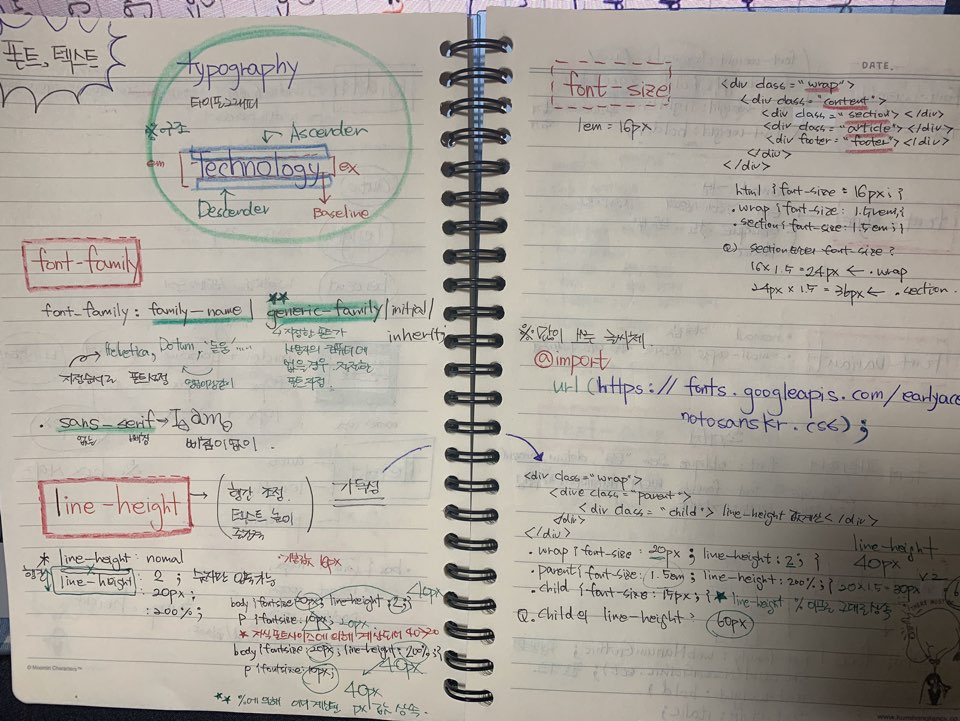 폰트, 텍스트
typography
타이포그래피
※구조
Ascender
em
Technology
ex
Descender
Baseline
font-family
font-family : family-name / generic-family / initial /
inherit;
Helvetica, Dotum, '돋움' ....
↳ 지정한 폰트가
사용자의 컴퓨터에
없을 경우 지정한
폰트지정
· sans-serif → I am
없는 삐침
삐침이 없이.
line-height
→ ( 행간 조정.
텍스트 높이
가독성
* line-height : nomal
행간 line-height : 2 ; 숫자만 입력가능
: 20px ;
: 200% ;
기본값은 16px
body { fontsize : 20px ; line-height : 2 ; }
40px
p { fontsize : 10px ; 20px .
* 자식 폰트사이즈에 의해 계산되어 40→20
body { fontsize : 20px ; line-height : 200% ; }
40px
p { fontsize : 10px ;
40px
** %에 의해 이미 계산된 px 값 상속.
© Moomin Characters™
DATE.
font-size
1em = 16px
<div class="wrap">
<div class="content">
<div class="section"></div>
<div class="article"></div>
<div footer="footer"></div>
</div>
</div>
html { font-size = 16px ; }
.wrap { font-size : 1.5em ; }
.section { font-size : 1.5em ; }
Q) section font-size ?
16 x 1.5 = 24px ← .wrap
24px x 1.5 = 36px ← .section .
※ 많이 쓰는 글씨체
@import
url (https://fonts.googleapis.com/earlyacce
notosanskr.css) ;
<div class="wrap">
<dive class="parent">
<div class="child"> line-height 값계산 </div>
</div>
</div>
line-height
40px
.wrap { font-size : 20px ; line-height : 2 ; }
.parent { font-size : 1.5em ; line-height : 200% ; } 20x1.5=30px x2
.child { font-size : 15px ; } * line-height % 이므로 그대로상속
Q. child의 line-height : 60px